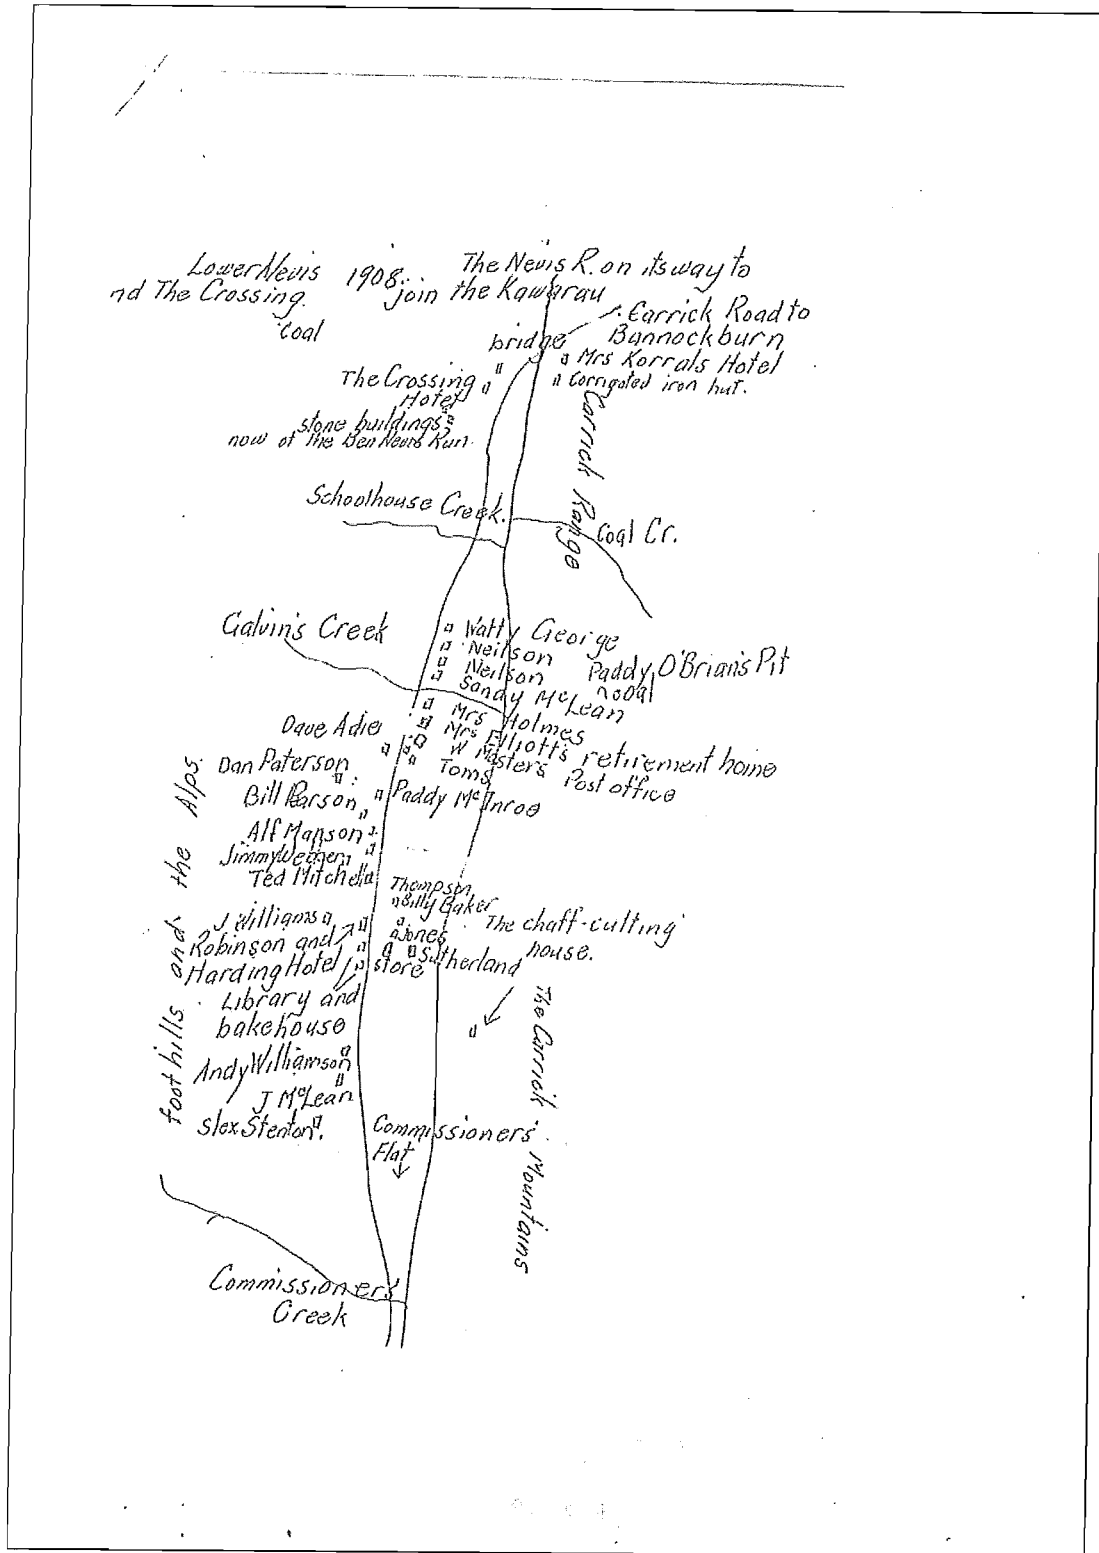 Lower Nevis 1908.
nd The Crossing.
Coal
The Nevis R. on its way to
join the Kawarau
Carrick Road to
Bannockburn
bridge
Mrs Korrals Hotel
Corrigated iron hut.
The Crossing
Hotel
stone buildings
now of the Ben Nevis Run.
Carrick Range
Schoolhouse Creek.
Coal Cr.
Galvin's Creek
Watty George
Neilson
Neilson
Sandy McLean
Paddy O'Brian's Pit
Mrs Holmes
Mrs Elliott's retirement home
W Masters Post office
Toms
Dave Adie
Dan Paterson
Bill Parson
Paddy McInroe
Alf Manson
Jimmy
Ted Mitchell
foothills and the Alps.
Thompson
Billy Baker
Jones
Sutherland
store
The chaff-cutting
house.
J Williams
Robinson and
Harding Hotel
Library and
bakehouse
Andy Williamson
J McLean
Stenton.
The Carrick Mountains
Commissioners'
Flat
Commissioners'
Creek